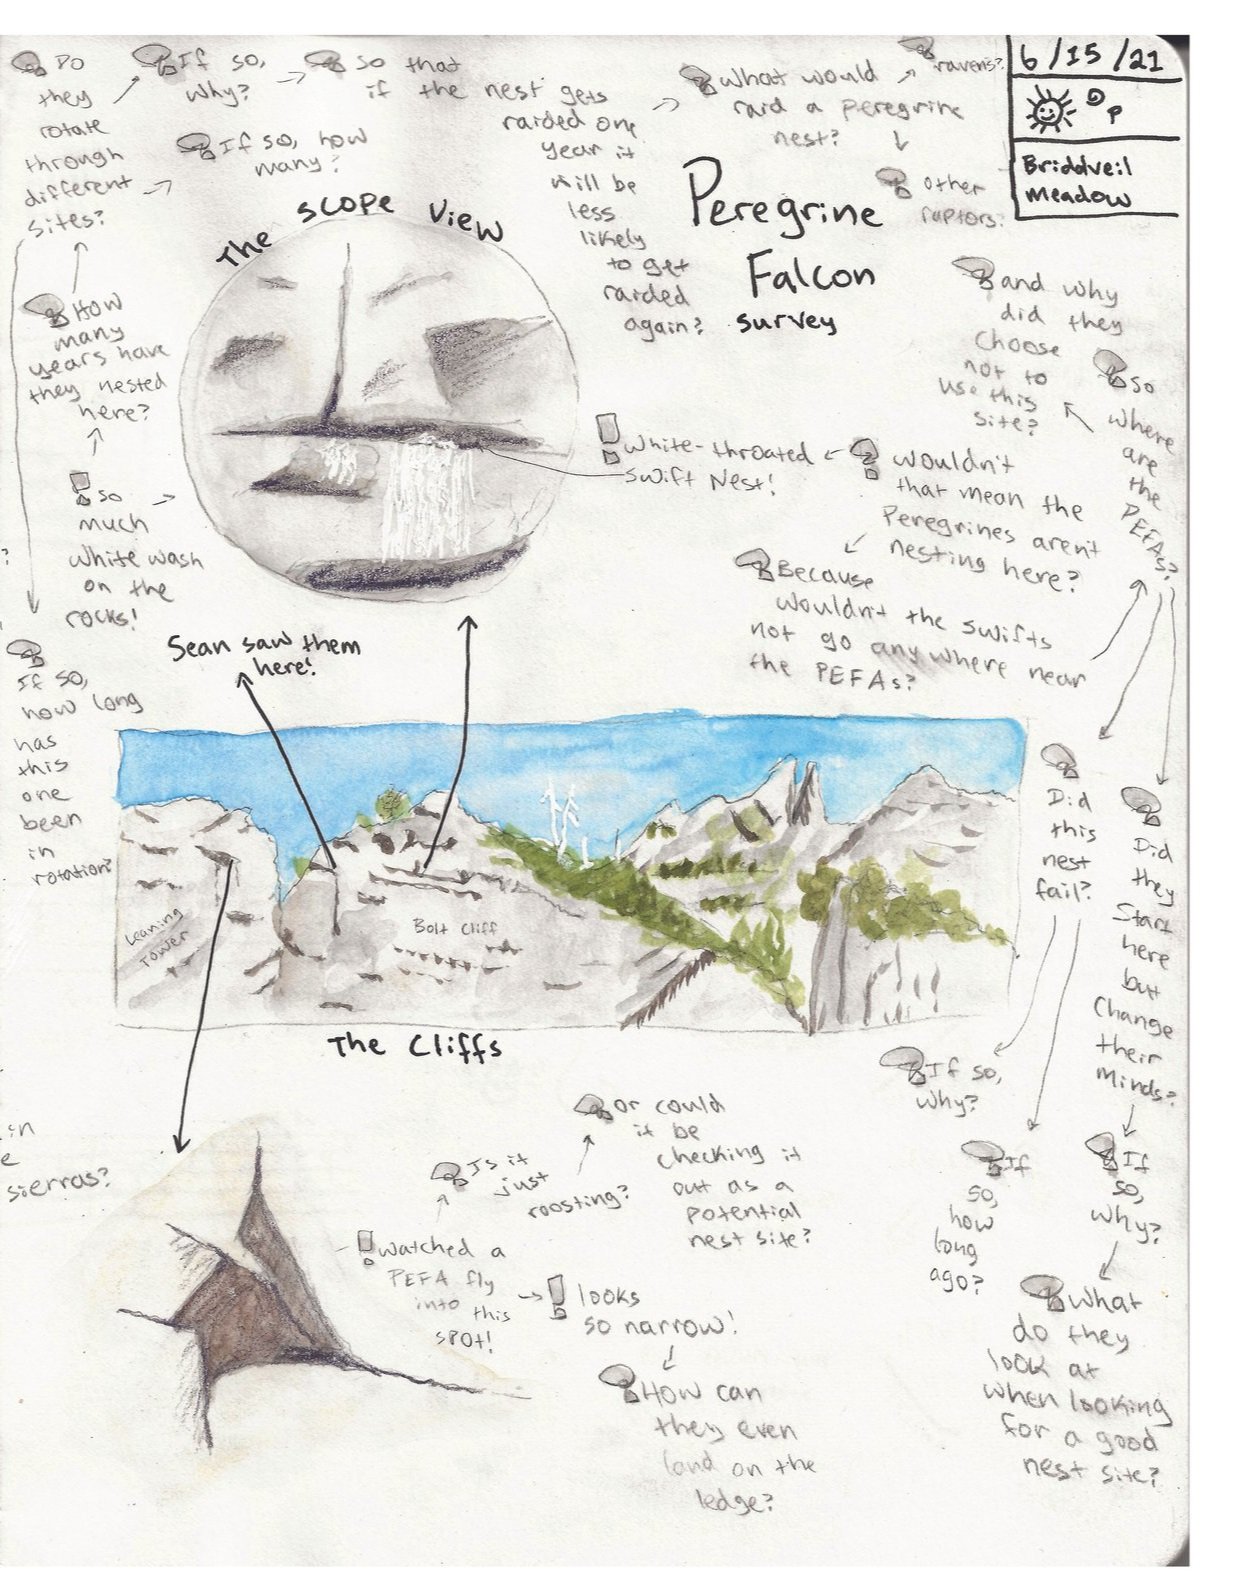 6/15/21
Briddveil
Meadow
Peregrine
Falcon
survey
The scope view
Do
they
rotate
through
different
sites?
If so,
why?
If so, how
many?
So that
if the nest gets
raided one
year it
will be
less
likely
to get
raided
again?
What would
raid a peregrine
nest?
ravens?
other
raptors?
How
many
years have
they nested
here?
so
much
white wash
on the
rocks!
If so,
how long
has
this
one
been
in
rotation?
White-throated
swift Nest!
wouldn't
that mean the
Peregrines aren't
nesting here?
Because
wouldn't the swifts
not go anywhere near
the PEFAs?
So
where
are
the
PEFAs?
and why
did they
choose
not to
use this
site?
Sean saw them
here!
Leaning
Tower
Bolt Cliff
The Cliffs
Did
this
nest
fail?
If so,
why?
If
so,
how
long
ago?
Did
they
Start
here
but
Change
their
Minds?
If
so,
why?
What
do they
look at
when looking
for a good
nest site?
watched a
PEFA fly
into this
spot!
Is it
just
roosting?
or could
it be
checking it
out as a
potential
nest site?
looks
so narrow!
How can
they even
land on the
ledge?
?
in
e
sierras?